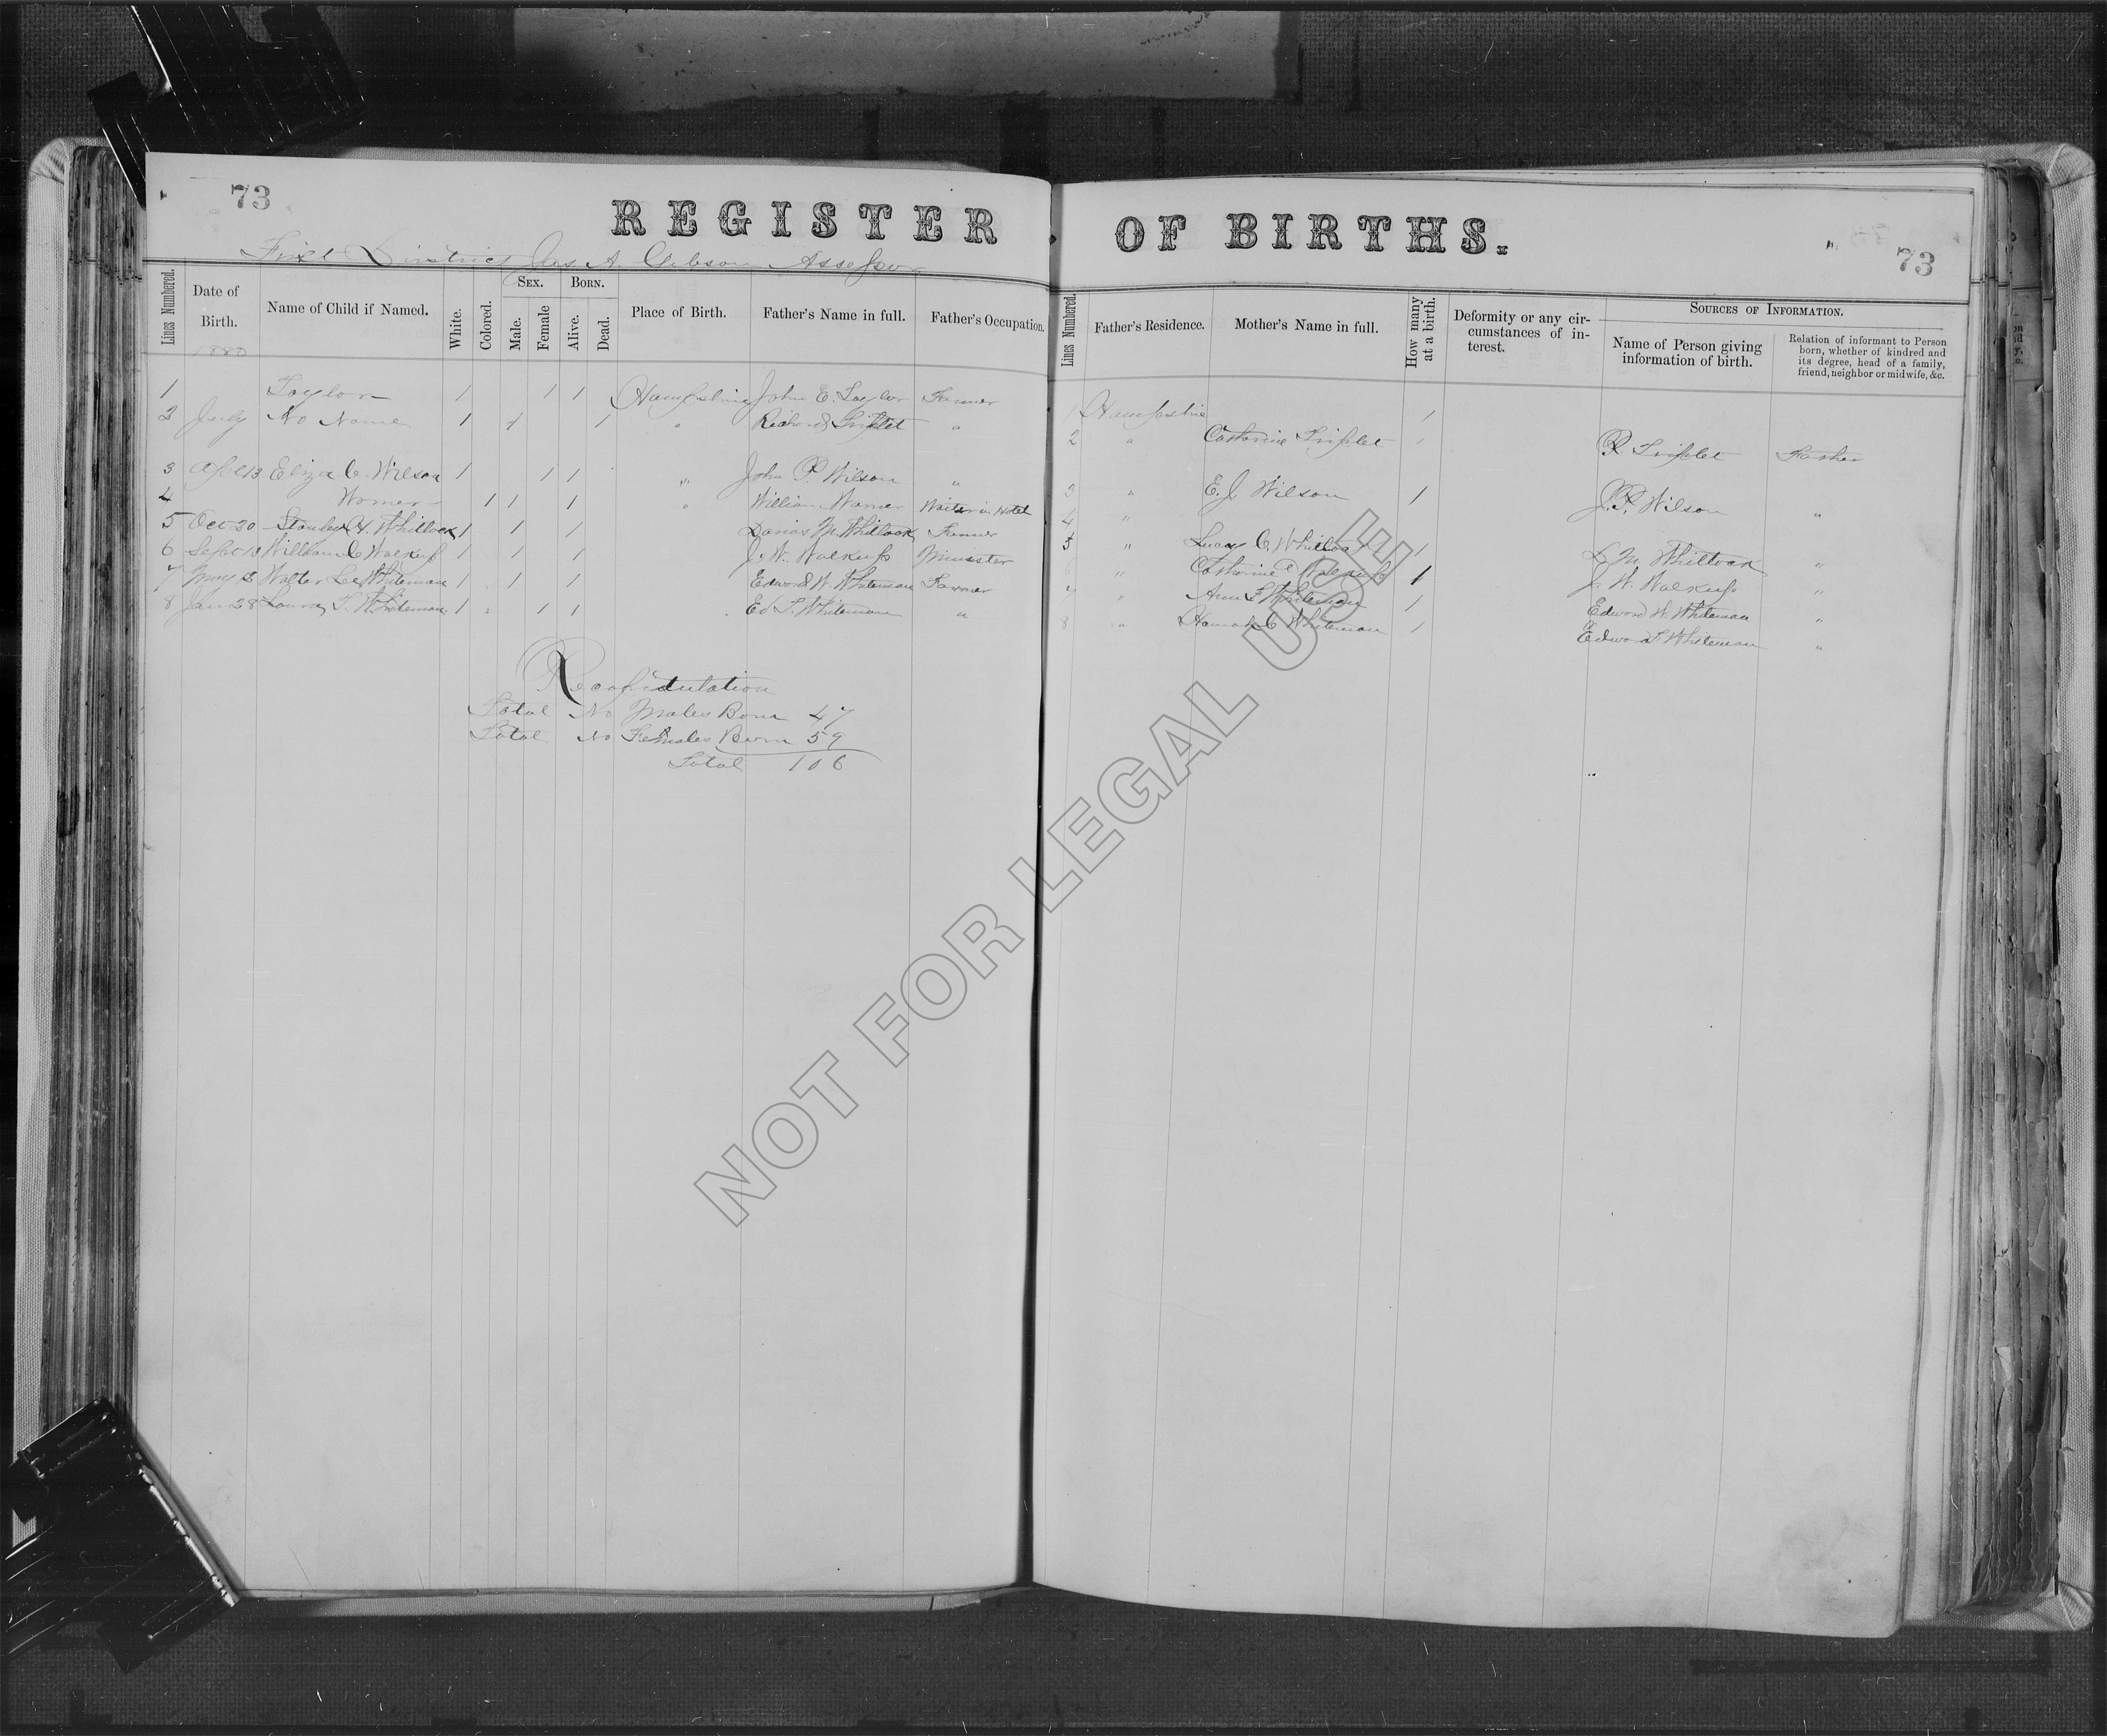 73
REGISTER OF BIRTHS.
73
First District Jas A Gibson Assessor
Lines Numbered.
Date of Birth.
Name of Child if Named.
White.
Colored.
Sex.
Male.
Female
Born.
Alive.
Dead.
Place of Birth.
Father's Name in full.
Father's Occupation.
Lines Numbered.
Father's Residence.
Mother's Name in full.
How many at a birth.
Deformity or any circumstances of interest.
Sources of Information.
Name of Person giving information of birth.
Relation of informant to Person born, whether of kindred and its degree, head of a family, friend, neighbor or midwife, &c.
1880
1 Taylor 1 1 1 Hampshire John E. Taylor Farmer 1 Hampshire 1
2 July No Name 1 1 1 " Richard Triplet " 2 " Catharine Triplet 1 R Triplet Father
3 Apl 13 Eliza C. Wilson 1 1 1 " John P. Wilson " 3 " E. J. Wilson 1 J. P. Wilson "
4 Womer 1 1 1 " William Womer Waiter in Hotel 4 "
5 Oct 20 Stanley H. Whitlock 1 1 1 Darius M. Whitlock Farmer 5 " Lucy C. Whitlock 1 D. M. Whitlock "
6 Sept 13 William C Walkup 1 1 1 J. W. Walkup Minister 6 " Catharine Walkup 1 J. W. Walkup "
7 May Walter Lee Whiteman 1 1 1 Edward W. Whiteman Farmer 7 " Ann Whiteman 1 Edward W. Whiteman "
8 Jan 28 Laura S. Whiteman 1 1 1 Ed S. Whiteman " 8 " Hannah C Whiteman 1 Edward S Whiteman "
Recapitulation
Total No Males Born 47
Total No Females Born 59
Total 106
NOT FOR LEGAL USE